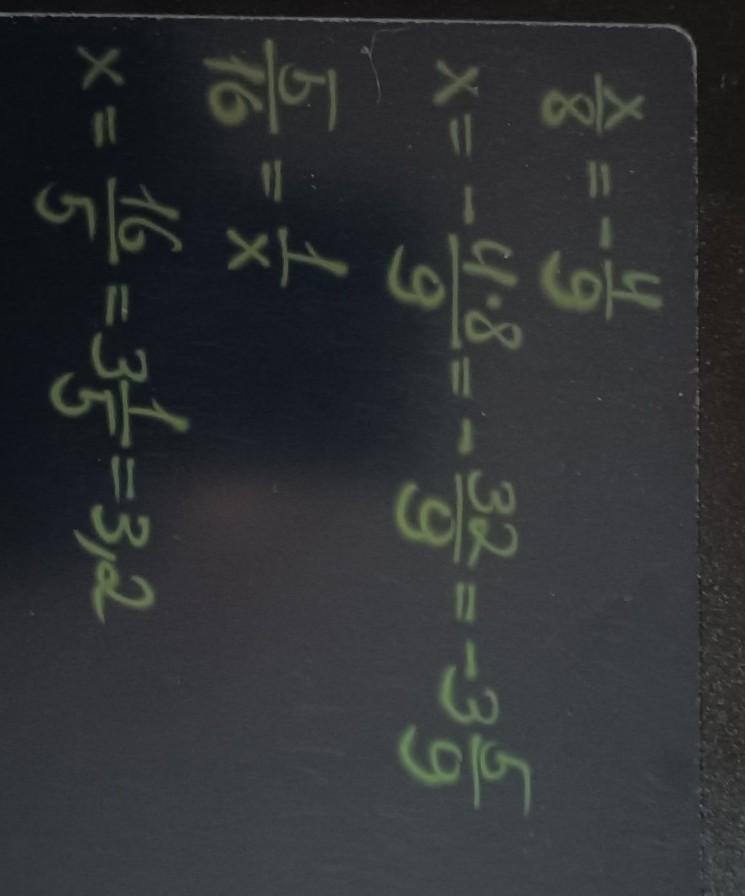 x/8 = -4/9
x = -4·8/9 = -32/9 = -3 5/9
5/16 = 1/x
x = 16/5 = 3 1/5 = 3,2